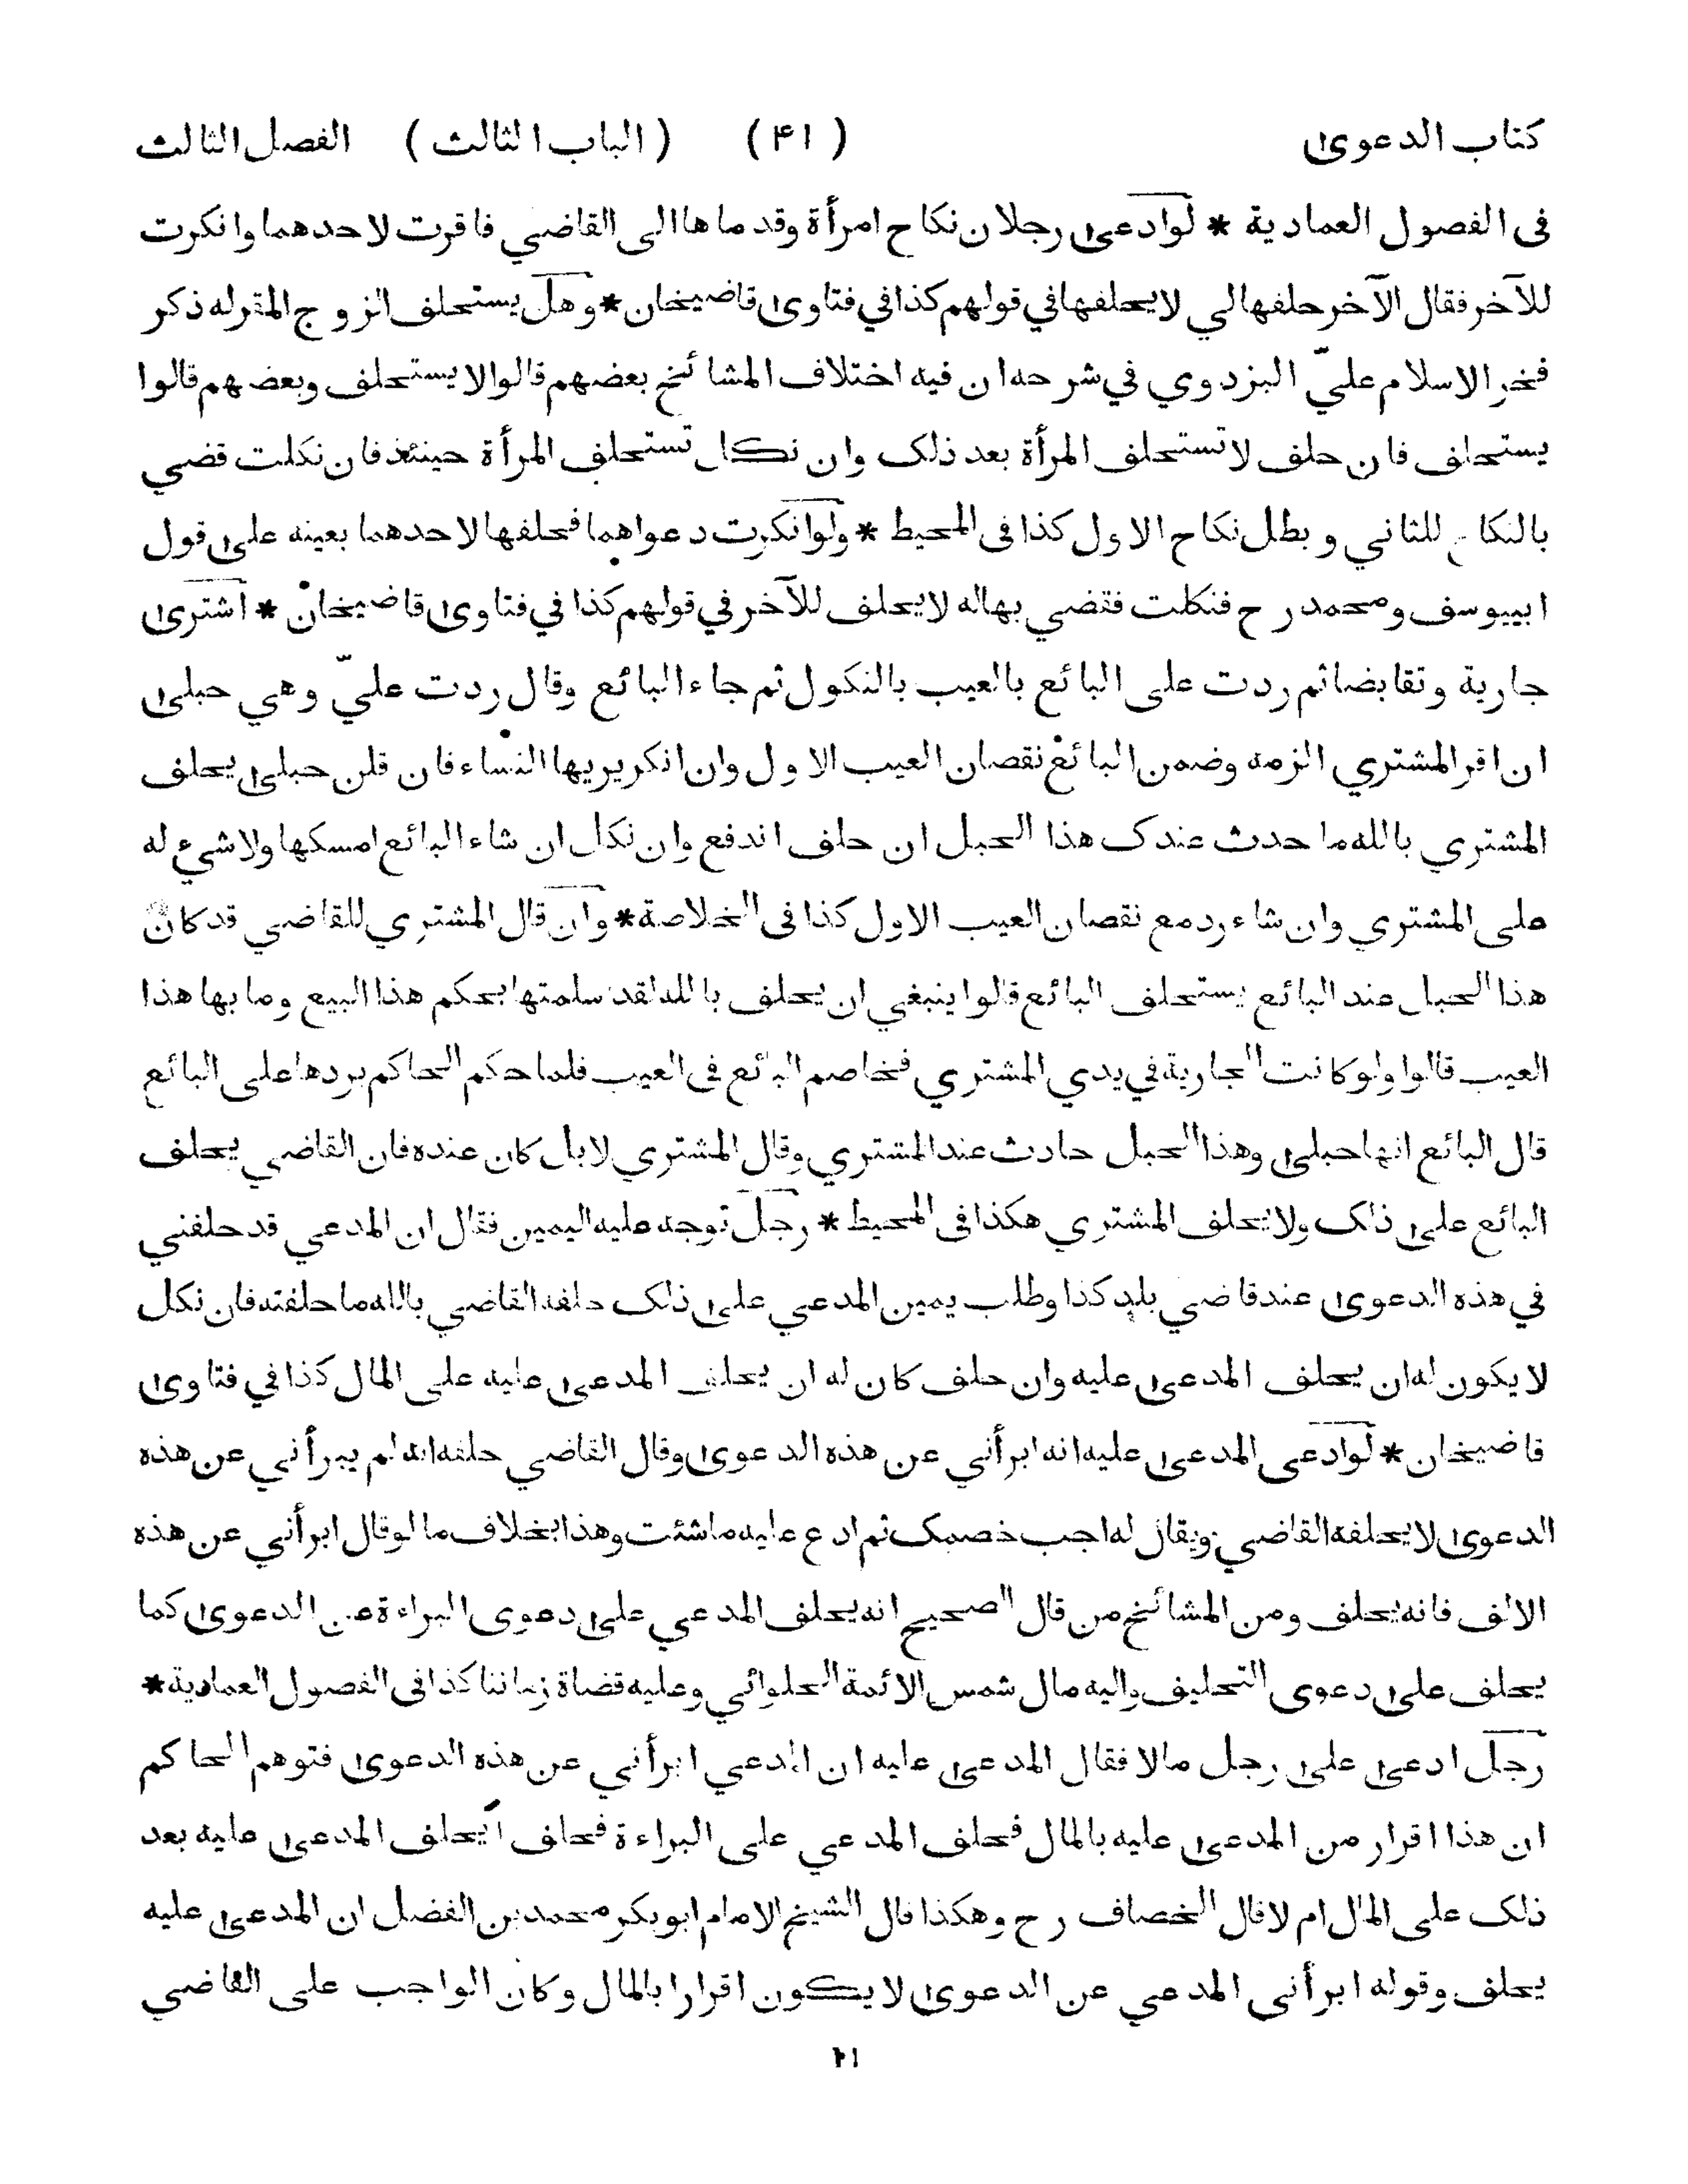 كتاب الدعوىٰ ( ۴۱ ) ( الباب الثالث ) الفصل الثالث
فى الفصول العمادية * لو ادعىٰ رجلان نكاح امرأة وقدماها الى القاضي فاقرت لاحدهما وانكرت
للآخر فقال الآخر حلفها لي لا يحلفها في قولهم كذا في فتاوىٰ قاضيخان * وهل يستحلف الزوج المقر له ذكر
فخر الاسلام عليّ البزدوي في شرحه ان فيه اختلاف المشائخ بعضهم قالوا لا يستحلف وبعضهم قالوا
يستحلف فان حلف لا تستحلف المرأة بعد ذلك وان نكل تستحلف المرأة حينئذ فان نكلت قضي
بالنكاح للثاني وبطل نكاح الاول كذا فى المحيط * ولو انكرت دعواهما فحلفها لاحدهما بعينه علىٰ قول
ابييوسف ومحمد رح فنكلت فقضي بها له لا يحلف للآخر في قولهم كذا في فتاوىٰ قاضيخان * اشترىٰ
جارية وتقابضا ثم ردت على البائع بالعيب بالنكول ثم جاء البائع وقال ردت عليّ وهي حبلىٰ
ان اقر المشتري الزمه وضمن البائع نقصان العيب الاول وان انكر يريها النساء فان قلن حبلىٰ يحلف
المشتري بالله ما حدث عندك هذا الحبل ان حلف اندفع وان نكل ان شاء البائع امسكها ولا شيء له
على المشتري وان شاء رد مع نقصان العيب الاول كذا فى الخلاصة * وان قال المشتري للقاضي قد كان
هذا الحبل عند البائع يستحلف البائع قالوا ينبغي ان يحلف بالله لقد سلمتها بحكم هذا البيع وما بها هذا
العيب قالوا ولو كانت الجارية في يدي المشتري فخاصم البائع فى العيب فلما حكم الحاكم بردها على البائع
قال البائع انها حبلىٰ وهذا الحبل حادث عند المشتري وقال المشتري لا بل كان عنده فان القاضي يحلف
البائع علىٰ ذلك ولا يحلف المشتري هكذا فى المحيط * رجل توجه عليه اليمين فقال ان المدعي قد حلفني
في هذه الدعوىٰ عند قاضي بلد كذا وطلب يمين المدعي علىٰ ذلك حلفه القاضي بالله ما حلفته فان نكل
لا يكون له ان يحلف المدعىٰ عليه وان حلف كان له ان يحلف المدعىٰ عليه على المال كذا في فتاوىٰ
قاضيخان * لو ادعى المدعىٰ عليه انه ابرأني عن هذه الدعوىٰ وقال القاضي حلفه انه لم يبرأني عن هذه
الدعوىٰ لا يحلفه القاضي ويقال له اجب خصمك ثم ادع عليه ما شئت وهذا بخلاف ما لو قال ابرأني عن هذه
الالف فانه يحلف ومن المشائخ من قال الصحيح انه يحلف المدعي علىٰ دعوى البراءة عن الدعوىٰ كما
يحلف علىٰ دعوى التحليف واليه مال شمس الائمة الحلوائي وعليه قضاة زماننا كذا فى الفصول العمادية *
رجل ادعىٰ علىٰ رجل مالا فقال المدعىٰ عليه ان المدعي ابرأني عن هذه الدعوىٰ فتوهم الحاكم
ان هذا اقرار من المدعىٰ عليه بالمال فحلف المدعي على البراءة فحلف أيحلف المدعىٰ عليه بعد
ذلك على المال ام لا قال الخصاف رح وهكذا قال الشيخ الامام ابوبكر محمد بن الفضل ان المدعىٰ عليه
يحلف وقوله ابرأنى المدعي عن الدعوىٰ لا يكون اقرارا بالمال وكان الواجب على القاضي